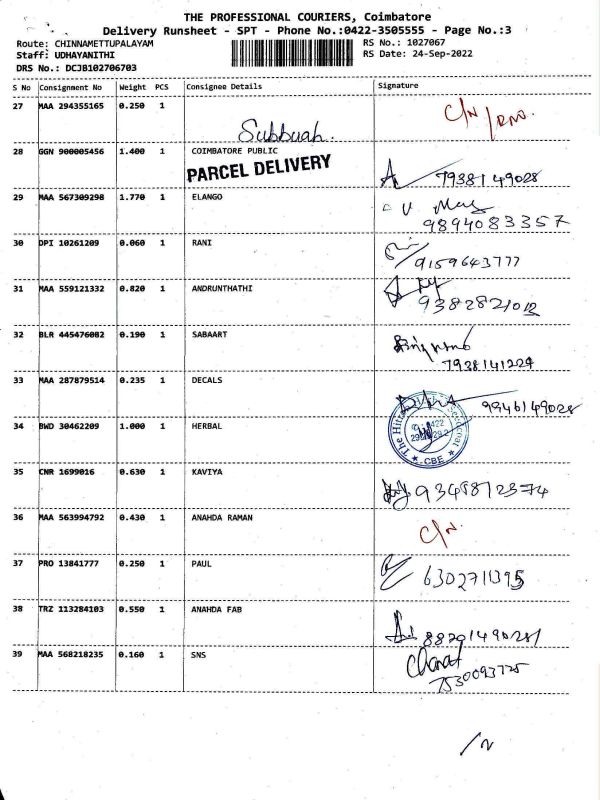 THE PROFESSIONAL COURIERS, Coimbatore
Delivery Runsheet - SPT - Phone No.:0422-3505555 - Page No.:3
Route: CHINNAMETTUPALAYAM RS No.: 1027067
Staff: UDHAYANITHI RS Date: 24-Sep-2022
DRS No.: DCJB102706703
S No Consignment No Weight PCS Consignee Details Signature
27 MAA 294355165 0.250 1 Subbuah. C/N
28 GGN 900005456 1.400 1 COIMBATORE PUBLIC
PARCEL DELIVERY 7938149028
29 MAA 567309298 1.770 1 ELANGO
9894083357
30 DPI 10261209 0.060 1 RANI
9159643777
31 MAA 559121332 0.820 1 ANDRUNTHATHI
9382821012
32 BLR 445476082 0.190 1 SABAART
7938141224
33 MAA 287879514 0.235 1 DECALS 9946149028
34 BWD 30462209 1.000 1 HERBAL
CBE
35 CNR 1699016 0.630 1 KAVIYA
9345812374
36 MAA 563994792 0.430 1 ANAHDA RAMAN C/N.
37 PRO 13841777 0.250 1 PAUL
6302711395
38 TRZ 113284103 0.550 1 ANAHDA FAB
39 MAA 568218235 0.160 1 SNS
7530093725